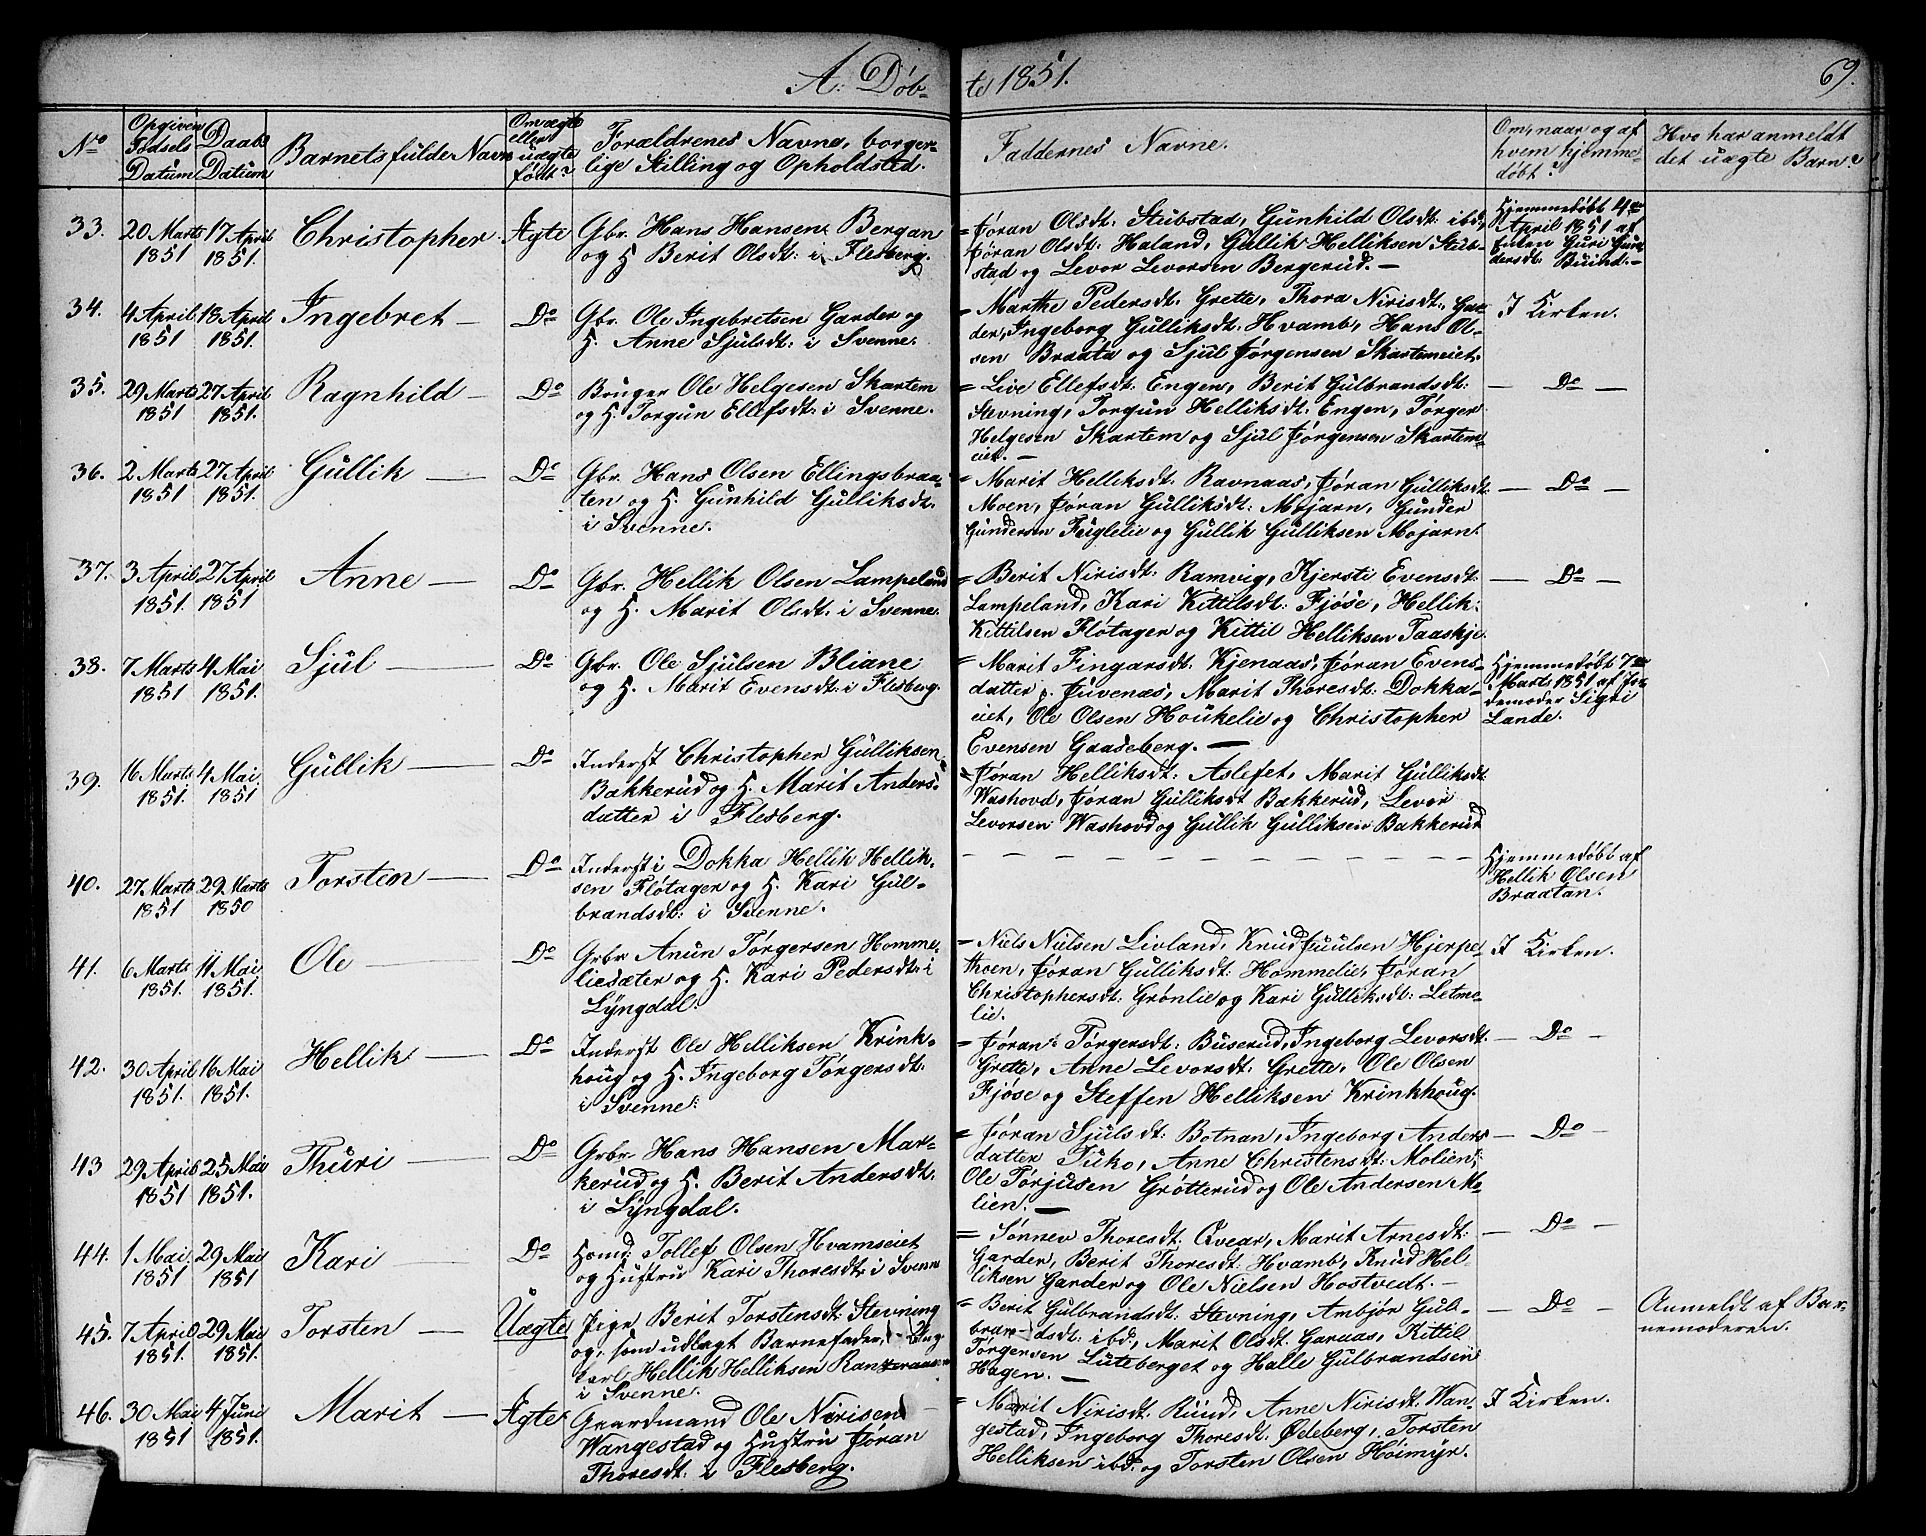 A. Døb-
te 1851.
69.
No
Opgiven Fødsels Datum
Daabs Datum
Barnets fulde Navn
Om ægte eller uægte født?
Forældrenes Navne, borger-
lige Stilling og Opholdsted.
Faddernes Navne.
Om, naar og af hvem hjemme-
døbt?
Hvo har anmeldt
det uægte Barn?
33. 20 Marts 1851 17 April 1851. Christopher Ægte
Gbr. Hans Hansen Bergan
og H. Berit Olsdt: i Flesberg.
= Jøran Olsdt: Stubstad, Gunhild Olsdt: ibd,
Jøran Olsdt: Haland, Gullik Helliksen Stub-
stad og Levor Levorsen Bergerud. —
Hjemmedøbt 4de
April 1851 af
Enken Guri Gun-
dersdt: Buind. —
34. 4 April 1851 18 April 1851. Ingebret — Do
Gbr. Ole Ingebretsen Garder og
H. Anne Sjulsdt: i Svenne.
= Marthe Pedersdt: Grette, Thora Nirisdt: Gar-
der, Ingeborg Gulliksdt: Hvamb, Hans Ol-
sen Braata og Sjul Jørgensen Skartumeiet.
I Kirken.
35. 29 Marts 1851 27 April 1851. Ragnhild — Do
Bruger Ole Helgesen Skartem
og H. Torgun Ellefsdt: i Svenne.
= Live Ellefsdt: Engen, Berit Gulbrandsdt:
Stevning, Torgun Helliksdt: Engen, Torger
Helgesen Skartem og Sjul Jørgensen Skartem-
eiet. —
— Do —
36. 2 Marts 1851 27 April 1851. Gullik — Do
Gbr. Hans Olsen Ellingsbraa-
ten og H. Gunhild Gulliksdt:
i Svenne.
= Marit Helliksdt: Ravnaas, Jøran Gulliksdt:
Moen, Jøran Gulliksdt: Mojarn, Gunder
Gundersen Fuglelie og Gullik Gulliksen Mojarn.
— Do —
37. 3 April 1851. 27 April 1851 Anne — Do
Gbr. Hellik Olsen Lampeland
og H. Marit Olsdt: i Svenne.
= Berit Nirisdt: Ramvig, Kjersti Evensdt:
Lampeland, Kari Kittilsdt: Fjøse, Hellik
Kittilsen Fløtager og Kittil Helliksen Taaskje.
— Do —
38. 7 Marts 1851 4 Mai 1851. Sjul — Do
Gbr. Ole Sjulsen Bliane
og H. Marit Evensdt: i Flesberg.
= Marit Fingarsdt: Kjenaas, Jøran Evens-
datter p. Juvenæs, Marit Thoresdt: Dokka-
eiet, Ole Olsen Houkelie og Christopher
Evensen Gaaseberg. —
Hjemmedøbt 7de
Marts 1851 af Jor-
demoder Sigri
Lande.
39. 16 Marts 1851. 4 Mai 1851 Gullik — Do
Inderst Christopher Gulliksen
Bakkerud og H. Marit Anders-
datter i Flesberg.
= Jøran Helliksdt: Aslefet, Marit Gulliksdt
Washovd, Jøran Gulliksdt Bakkerud, Levor
Levorsen Washovd og Gullik Gulliksen Bakkerud
40. 27 Marts 1851 29 Marts 1850 Torsten — Do
Inderst i Dokka Hellik Hellik-
sen Fløtager og H. Kari Gul-
brandsdt: i Svenne.
— — — — — — — —
Hjemmedøbt af
Hellik Olsen
Braatan.
41. 6 Marts 1851. 11 Mai 1851. Ole — Do
Grbr. Anun Torgersen Homme-
liesæter og H. Kari Pedersdt: i
Lyngdal.
= Niels Nielsen Livland, Knud Juulsen Hjerpe-
thoen, Jøran Gulliksdt: Hommelie, Jøran
Christophersdt: Grønlie og Kari Gulliksdt: Letme-
lie.
I Kirken.
42. 30 April 1851. 16 Mai 1851. Hellik — Do
Inderst Ole Helliksen Krink-
houg og H. Ingeborg Torgersdt:
i Svenne.
= Jøran Torgersdt: Buserud, Ingeborg Levorsdt:
Grette, Anne Levorsdt: Grette, Ole Olsen
Fjøse og Steffen Helliksen Krinkhoug.
— Do —
43 29 April 1851 25 Mai 1851. Thuri — Do
Grbr. Hans Hansen Mar-
kerud og H. Berit Andersdt:
i Lyngdal.
= Jøran Sjulsdt: Botnan, Ingeborg Anders
datter Tuko, Anne Christensdt: Molien,
Ole Torjusen Grøtterud og Ole Andersen Mo-
lien. —
— Do —
44. 1 Mai 1851 29 Mai 1851 Kari — Do
Hsmd. Tollef Olsen Hvamseiet
og Hustru Kari Thoresdt: i Svenne
= Sønnev Thoresdt: Qvear, Marit Arnesdt:
Garder, Berit Thoresdt: Hvamb, Knud Hel-
liksen Garder og Ole Nielsen Hostvedt. —
— Do —
45. 7 April 1851. 29 Mai 1851. Torsten — Uægte
Pige Berit Torstensdt: Stevning
og, som udlagt Barnefader, Ung-
karl Hellik Helliksen
i Svenne.
= Berit Gulbrandsdt: Stevning, Ambjør Gul-
brandsdt: ibd, Marit Olsdt: Garaas, Kittil
Torgersen Luteberget og Halle Gulbrandsen
Hagen. —
— Do —
Anmeldt af Bar-
nemoderen.
46. 30 Mai 1851 4 Juni 1851. Marit — Ægte
Gaardmand Ole Nirisen
Wangestad og Hustru Jøran
Thoresdt: i Flesberg.
= Marit Nirisdt: Ruud, Anne Nirisdt: Wan-
gestad, Ingeborg Thoresdt: Ødeberg, Torsten
Helliksen ibd. og Torsten Olsen Hoimyr.
I Kirken.